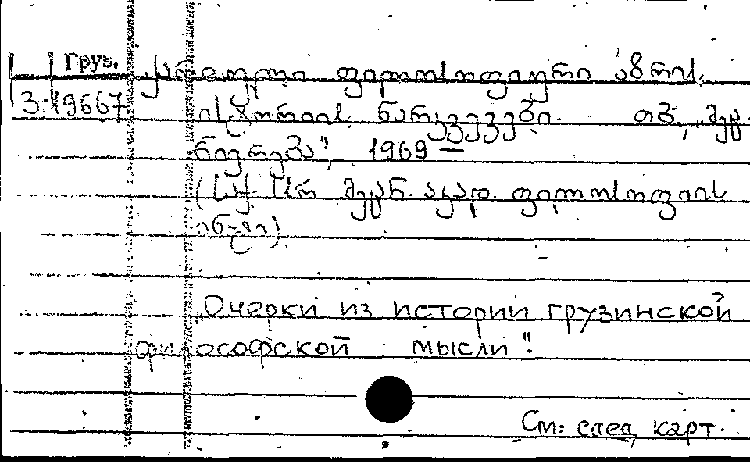 Груз.
ქართული ფილოსოფიური აზრის
3-19667 ისტორიის ნარკვევები თბ., „მეც
ნიერება", 1969 —
(საქ. სსრ მეცნ. აკად. ფილოსოფიის
ინ-ტი)
„Очерки из истории грузинской
философской мысли".
См. след. карт.